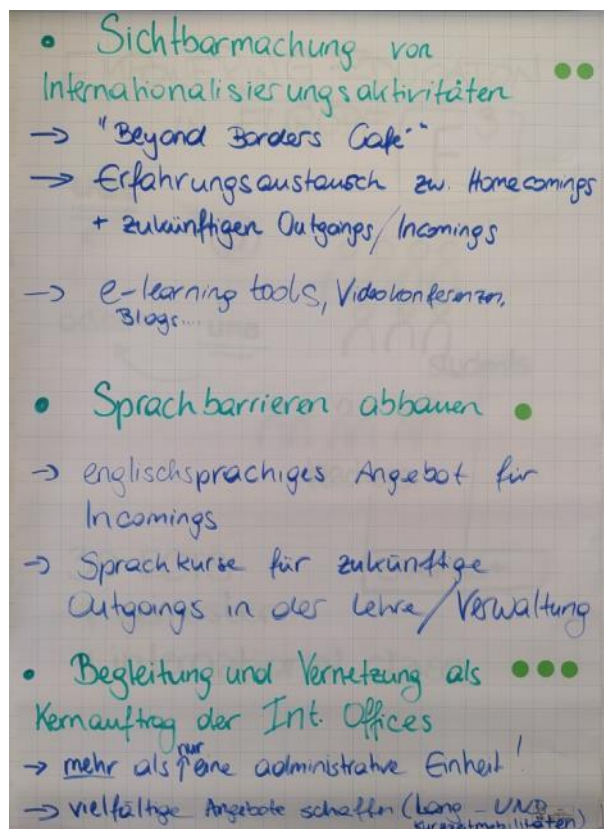 • Sichtbarmachung von
Internationalisierungsaktivitäten
→ "Beyond Borders Café"
→ Erfahrungsaustausch zw. Homecomings
+ zukünftigen Outgoings/Incomings
→ e-learning tools, Videokonferenzen,
Blogs...
• Sprachbarrieren abbauen
→ englischsprachiges Angebot für
Incomings
→ Sprachkurse für zukünftige
Outgoings in der Lehre/Verwaltung
• Begleitung und Vernetzung als
Kernauftrag der Int. Offices
→ mehr als nur eine administrative Einheit!
→ vielfältige Angebote schaffen (Lang- UND
Kurzzeitmobilitäten)